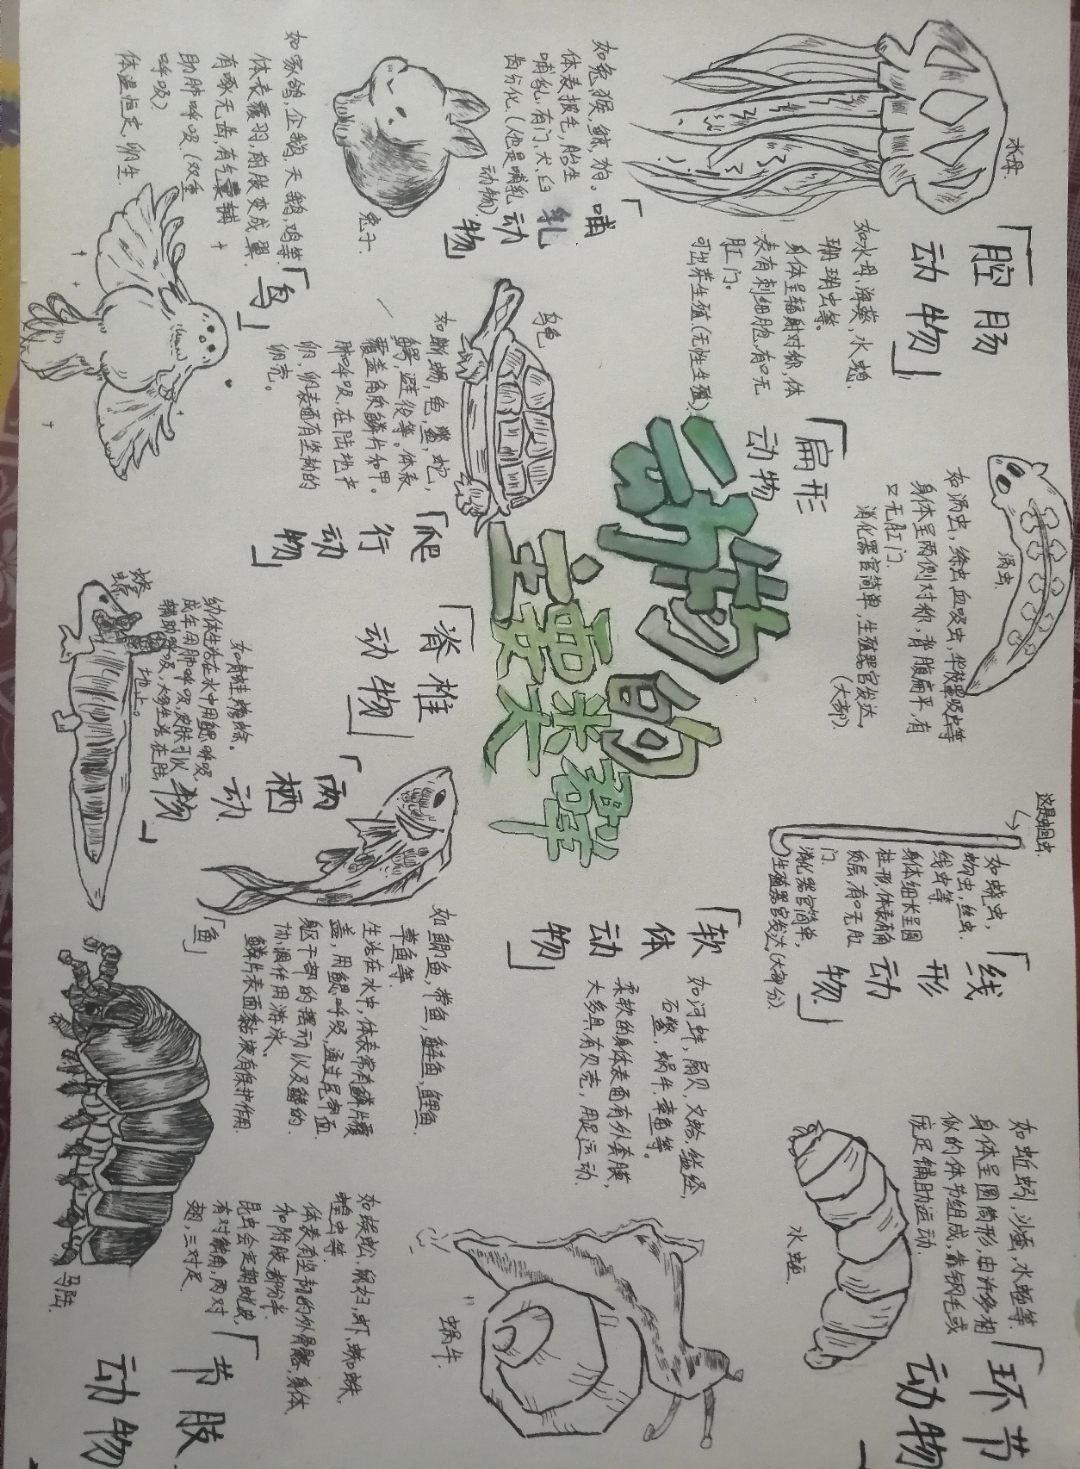 动物的
主要类群
「腔肠
动物」
水母.
如水母,海葵,水螅.
珊瑚虫等.
身体呈辐射对称,体
表有刺细胞,有口无
肛门。
可出芽生殖.(无性生殖)
「扁形
动物
涡虫.
如涡虫,绦虫,血吸虫,华枝睾吸虫等
身体呈两侧对称,背腹扁平,有
口无肛门.
消化器官简单,生殖器官发达。
(大部)
「线
形
动
物.」
这是蛔虫.
如蛲虫,
蛔虫,丝虫.
线虫等
身体细长呈圆
柱形,体表有角
质层,有口无肛
门.
消化器官简单,
生殖器官发达(大部分)
「环节
动物」
如蚯蚓,沙蚕,水蛭等.
身体呈圆筒形,由许多相
似的体节组成,靠刚毛或
疣足辅助运动.
水蛭.
「软
体
动
物」
如河蚌,扇贝,文蛤,缢蛏,
石鳖,蜗牛,章鱼等。
柔软的身体表面有外套膜,
大多具有贝壳,用足运动.
蜗牛.
「节肢
动物
如蜈蚣,鼠妇,虾,蜘蛛,
蝗虫等.
体表有坚韧的外骨骼,身体
和附肢都分节.
昆虫会定期蜕皮,
有一对触角,两对
翅,三对足.
马陆.
「脊椎
动物」
「哺
乳
动
物
如兔,猴,鲸,狗。
体表披毛,胎生
哺乳,有门,犬,臼
齿分化(人也是哺乳
动物)
兔子.
「鸟」
如家鸽,企鹅,天鹅,鸡等
体表覆羽,前肢变成翼.
有喙无齿,有气囊辅
助肺呼吸(双重
呼吸)
体温恒定,卵生.
「爬
行
动
物」
乌龟
如蜥蜴,龟,鳖,蛇,
鳄,避役等。体表
覆盖角质鳞片和甲。
肺呼吸,在陆地产
卵.卵表面有坚韧的
卵壳。
「两
栖
动
物」
蝾螈
如青蛙,蝾螈。
幼体生活在水中用鳃呼吸
成年用肺呼吸,皮肤可以
辅助呼吸,大多生活在陆
地上。
「鱼」
如鲫鱼,带鱼,鲢鱼,鲤鱼,
草鱼等.
生活在水中,体表常有鳞片覆
盖,用鳃呼吸,通过尾部和
躯干部的摆动以及鳍的
协调作用游泳。
鳞片表面黏液有保护作用.